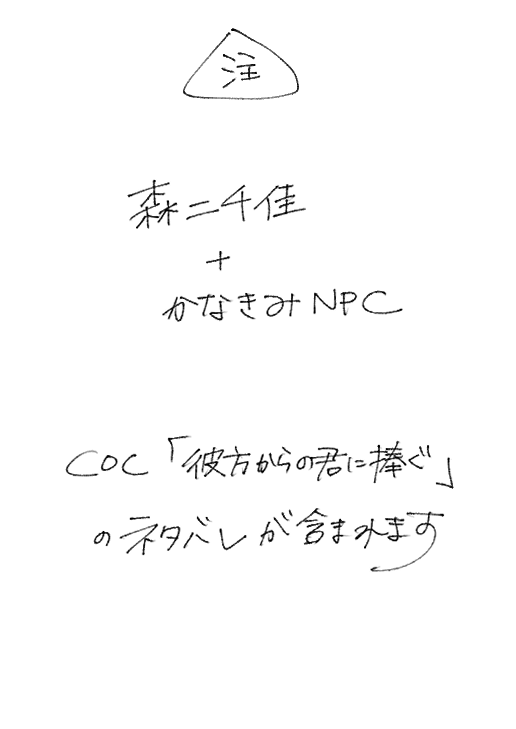 注
森二千佳
+
かなきみNPC
COC「彼方からの君に捧ぐ」
のネタバレが含まれます